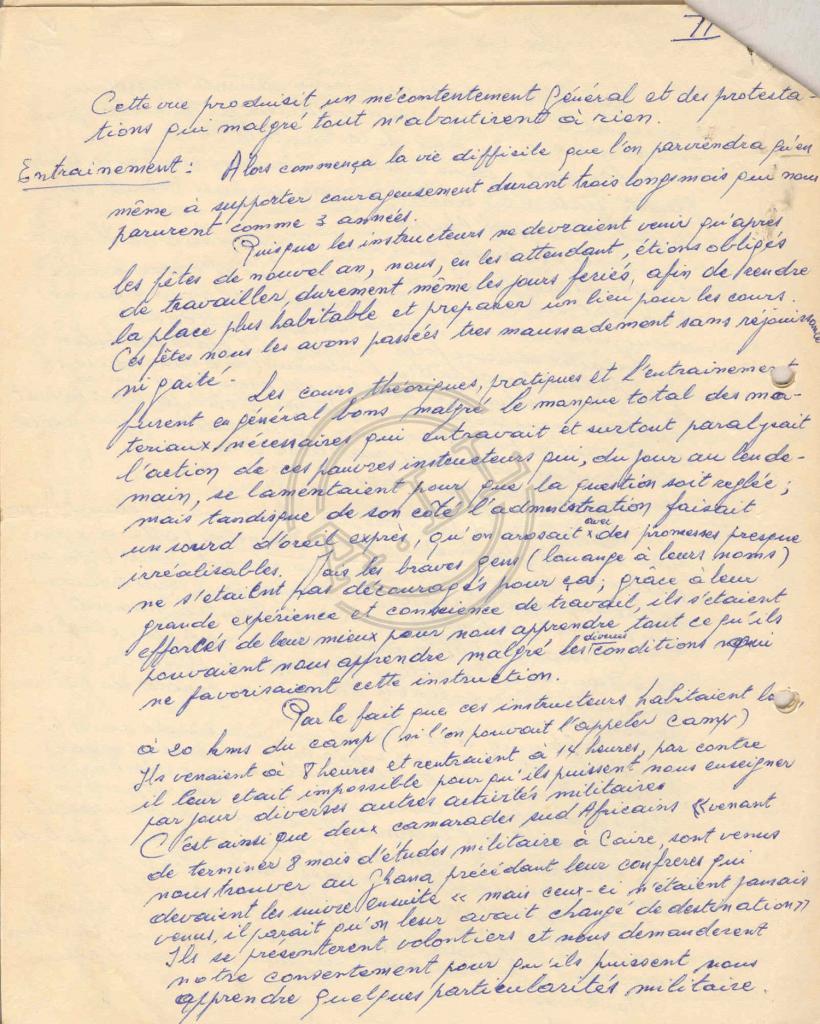 71
Cette vue produisit un mécontentement Général et des protesta-
tions qui malgré tout n'aboutirent à rien.
Entrainement : Alors commença la vie difficile que l'on parviendra qu'en
même à supporter courageusement durant trois longs mois qui nous
parurent comme 3 années.
Puisque les instructeurs ne devraient venir qu'après
les fêtes de nouvel an, nous, en les attendant, étions obligés
de travailler, durement même les jours feriés, afin de rendre
la place plus habitable et preparer un lieu pour les cours.
Ces fêtes nous les avons passées tres maussadement sans réjouissance
ni gaité.
Les cours théoriques, pratiques et l'entrainement
furent en général bons malgré le manque total des ma-
teriaux nécessaires qui entravait et surtout paralysait
l'action de ces pauvres instructeurs qui, du jour au lende-
main, se lamentaient pour que la question soit reglée ;
mais tandisque de son côté l'administration faisait
un sourd d'oreil exprès, qu'on arosait avec des promesses presque
irréalisables. Mais les braves gens (louange à leurs noms)
ne s'étaitent pas découragés pour ça ; grâce à leur
grande expérience et conscience de travail, ils s'étaient
efforcés de leur mieux pour nous apprendre tout ce qu'ils
pouvaient nous apprendre malgré les diverses conditions qui
ne favorisaient cette instruction.
Par le fait que ces instructeurs habitaient loin,
à 20 kms du camp (si l'on pouvait l'appeler camp)
Ils venaient à 8 heures et rentraient à 14 heures, par contre
il leur etait impossible pour qu'ils puissent nous enseigner
par jour diverses autres activités militaires
C'est ainsi que deux camarades sud Africains « venant
de terminer 8 mois d'études militaire à Caire, sont venus
nous trouver au Ghana précédant leur confreres qui
devaient les suivre ensuite « mais ceux-ci n'étaient jamais
venus, il paraît qu'on leur avait changé de destination »
Ils se présenterent volontiers et nous demanderent
notre consentement pour qu'ils puissent nous
apprendre quelques particularités militaire.